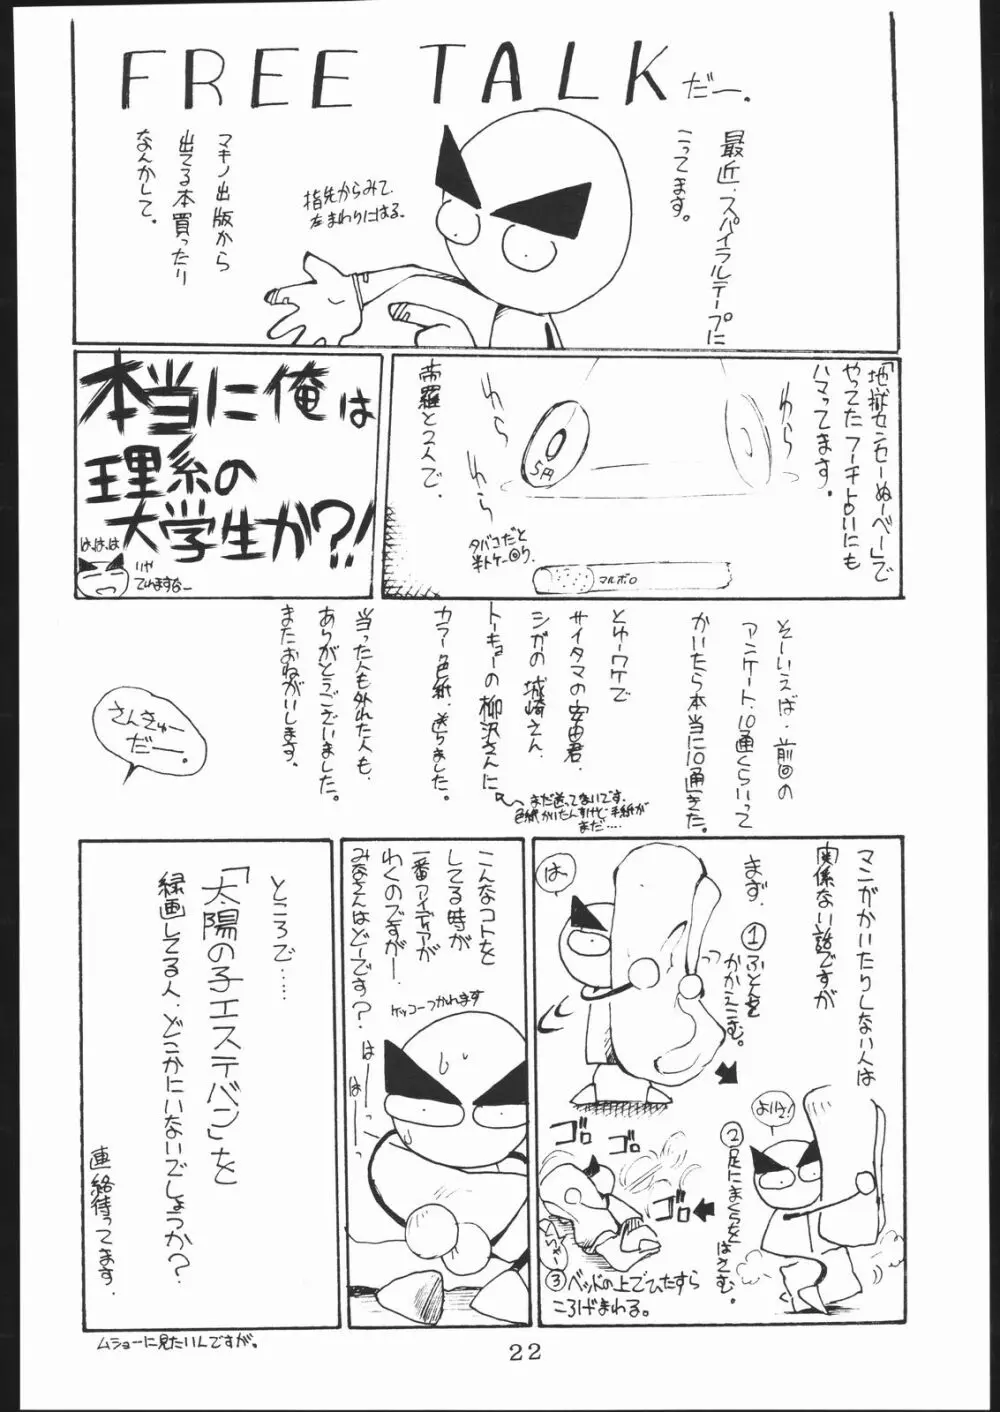 FREE TALKだー.
最近、スパイラルテープに
こってます。
指先からみて、
左まわりにはる。
マキノ出版から
出てる本買ったり
なんかして。
「地獄センセーぬ〜べ〜」で
やってたフーチよいにも
ハマってます。
わら
わら
わら
5円
帝羅と2人で、
タバコだと
マルボロ
本当に俺は
理系の
大学生か?!
は、は、は
いや
てれますなー
そーいえば、前回の
アンケート、10通くらいって
かいたら本当に10通きた。
とゆーワケで
サイタマの安田君、
シガの城崎さん、
トーキョーの柳沢さんに
カラー色紙、送りました。
まだ送ってないです。
色紙かいたんすけど手紙が
まだ….
当った人も外れた人も、
ありがとうございました。
またおねがいします。
さんきゅー
だー。
マンガかいたりしない人は
関係ない話ですが
まず、
①ふとんを
かかえこむ。
は、
よいしょ!
②足にまくらを
はさむ。
ゴロ
ゴロ
ゴロ
③ベッドの上でひたすら
ころげまわる。
こんなコトを
してる時が
一番アイディアが
わくのですがー、
みなさんはどーです?
ケッコーつかれます
はー
はー
ところで……
「太陽の子エステバン」を
録画してる人、どこかにいないでしょうか?
連絡待ってます.
ムショーに見たいんですが。
22